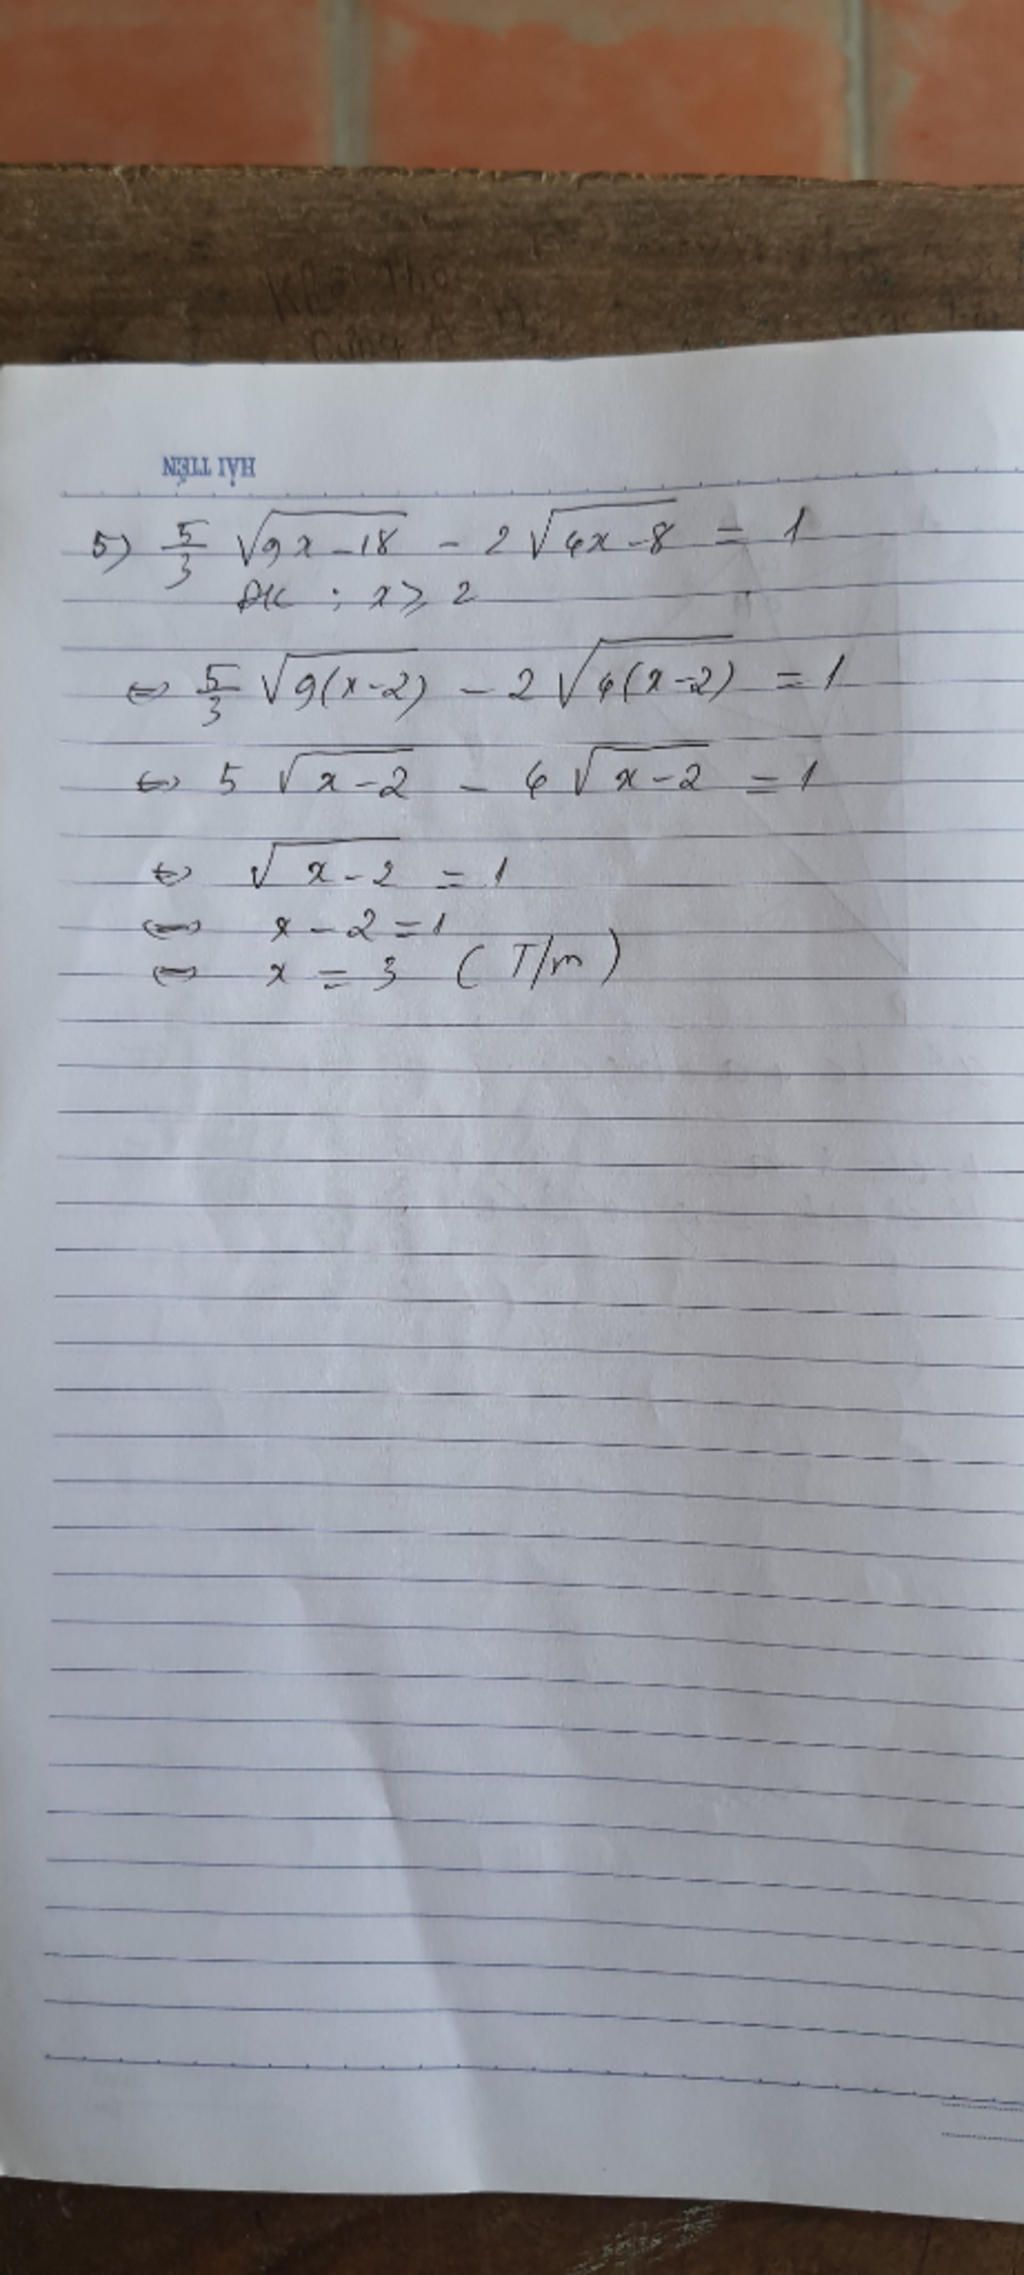 HẢI TIẾN
5) 5/3 √(9x-18) - 2√(4x-8) = 1
ĐK : x ⩾ 2
⇔ 5/3 √(9(x-2)) - 2√(4(x-2)) = 1
⇔ 5 √(x-2) - 4 √(x-2) = 1
⇔ √(x-2) = 1
⇔ x - 2 = 1
⇔ x = 3 (T/m)